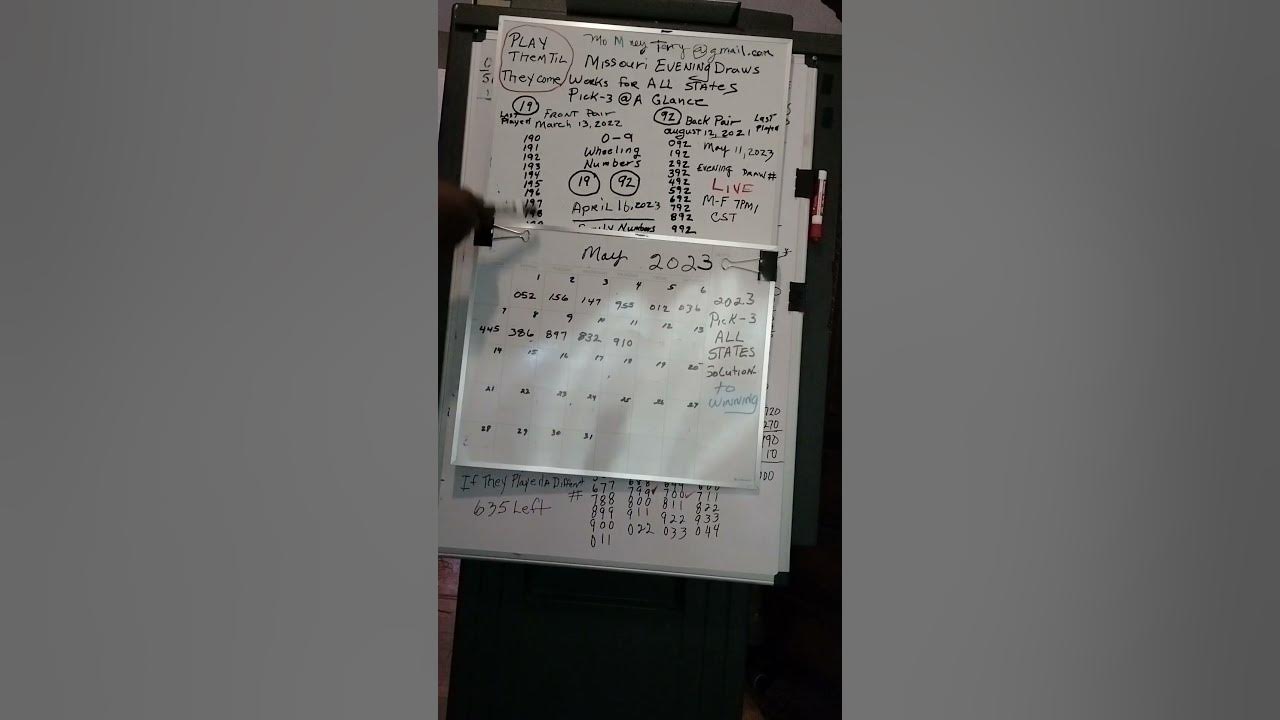 PLAY
THEM TIL
They come
Mo Money Terry@gmail.com
Missouri EVENING Draws
Works For ALL STATES
Pick-3 @ A Glance
19
Last
Played
FRONT Pair
March 13, 2022
190
191
192
193
194
195
196
197
198
0-9
Wheeling
Numbers
19 92
April 16, 2023
Family Numbers
92 Back Pair
Last
Played
august 12, 2021
092
192
292
392
492
592
692
792
892
992
May 11, 2023
Evening Draw #
LIVE
M-F 7PM/
CST
May 2023
1 2 3 4 5 6
052 156 147 955 012 036
7 8 9 10 11 12 13
445 386 897 832 910
14 15 16 17 18 19 20
21 22 23 24 25 26 27
28 29 30 31
2023
Pick-3
ALL
STATES
Solution
to
Winning
If They Played A Different
#
635 Left
677
788 799 700 711
899 800 811 822
900 911 922 933
011 022 033 044
720
270
790
10